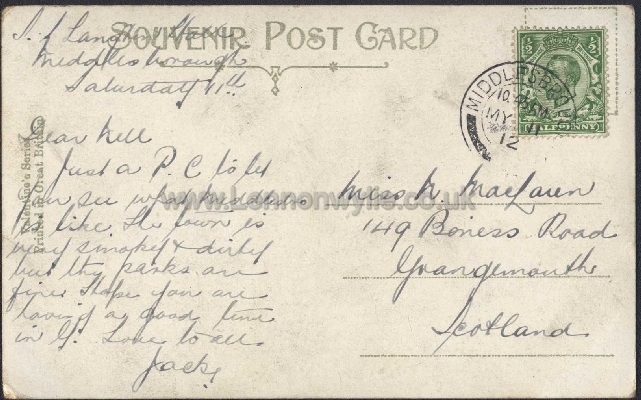 Souvenir Post Card
Middlesborough
Saturday 11th
Dear Nell
Just a P.C to let
you see what Middles
is like. The town is
very smoky & dirty
but the parks are
fine. Hope you are
having a good time
in G. Love to all
Jack
Valentine's Series
Printed in Great Britain
www.cannonwylie.co.uk
Miss N. MacLaren
149 Boness Road
Grangemouth
Scotland
MIDDLESBRO
MY 11
12
1/2 1/2
HALFPENNY